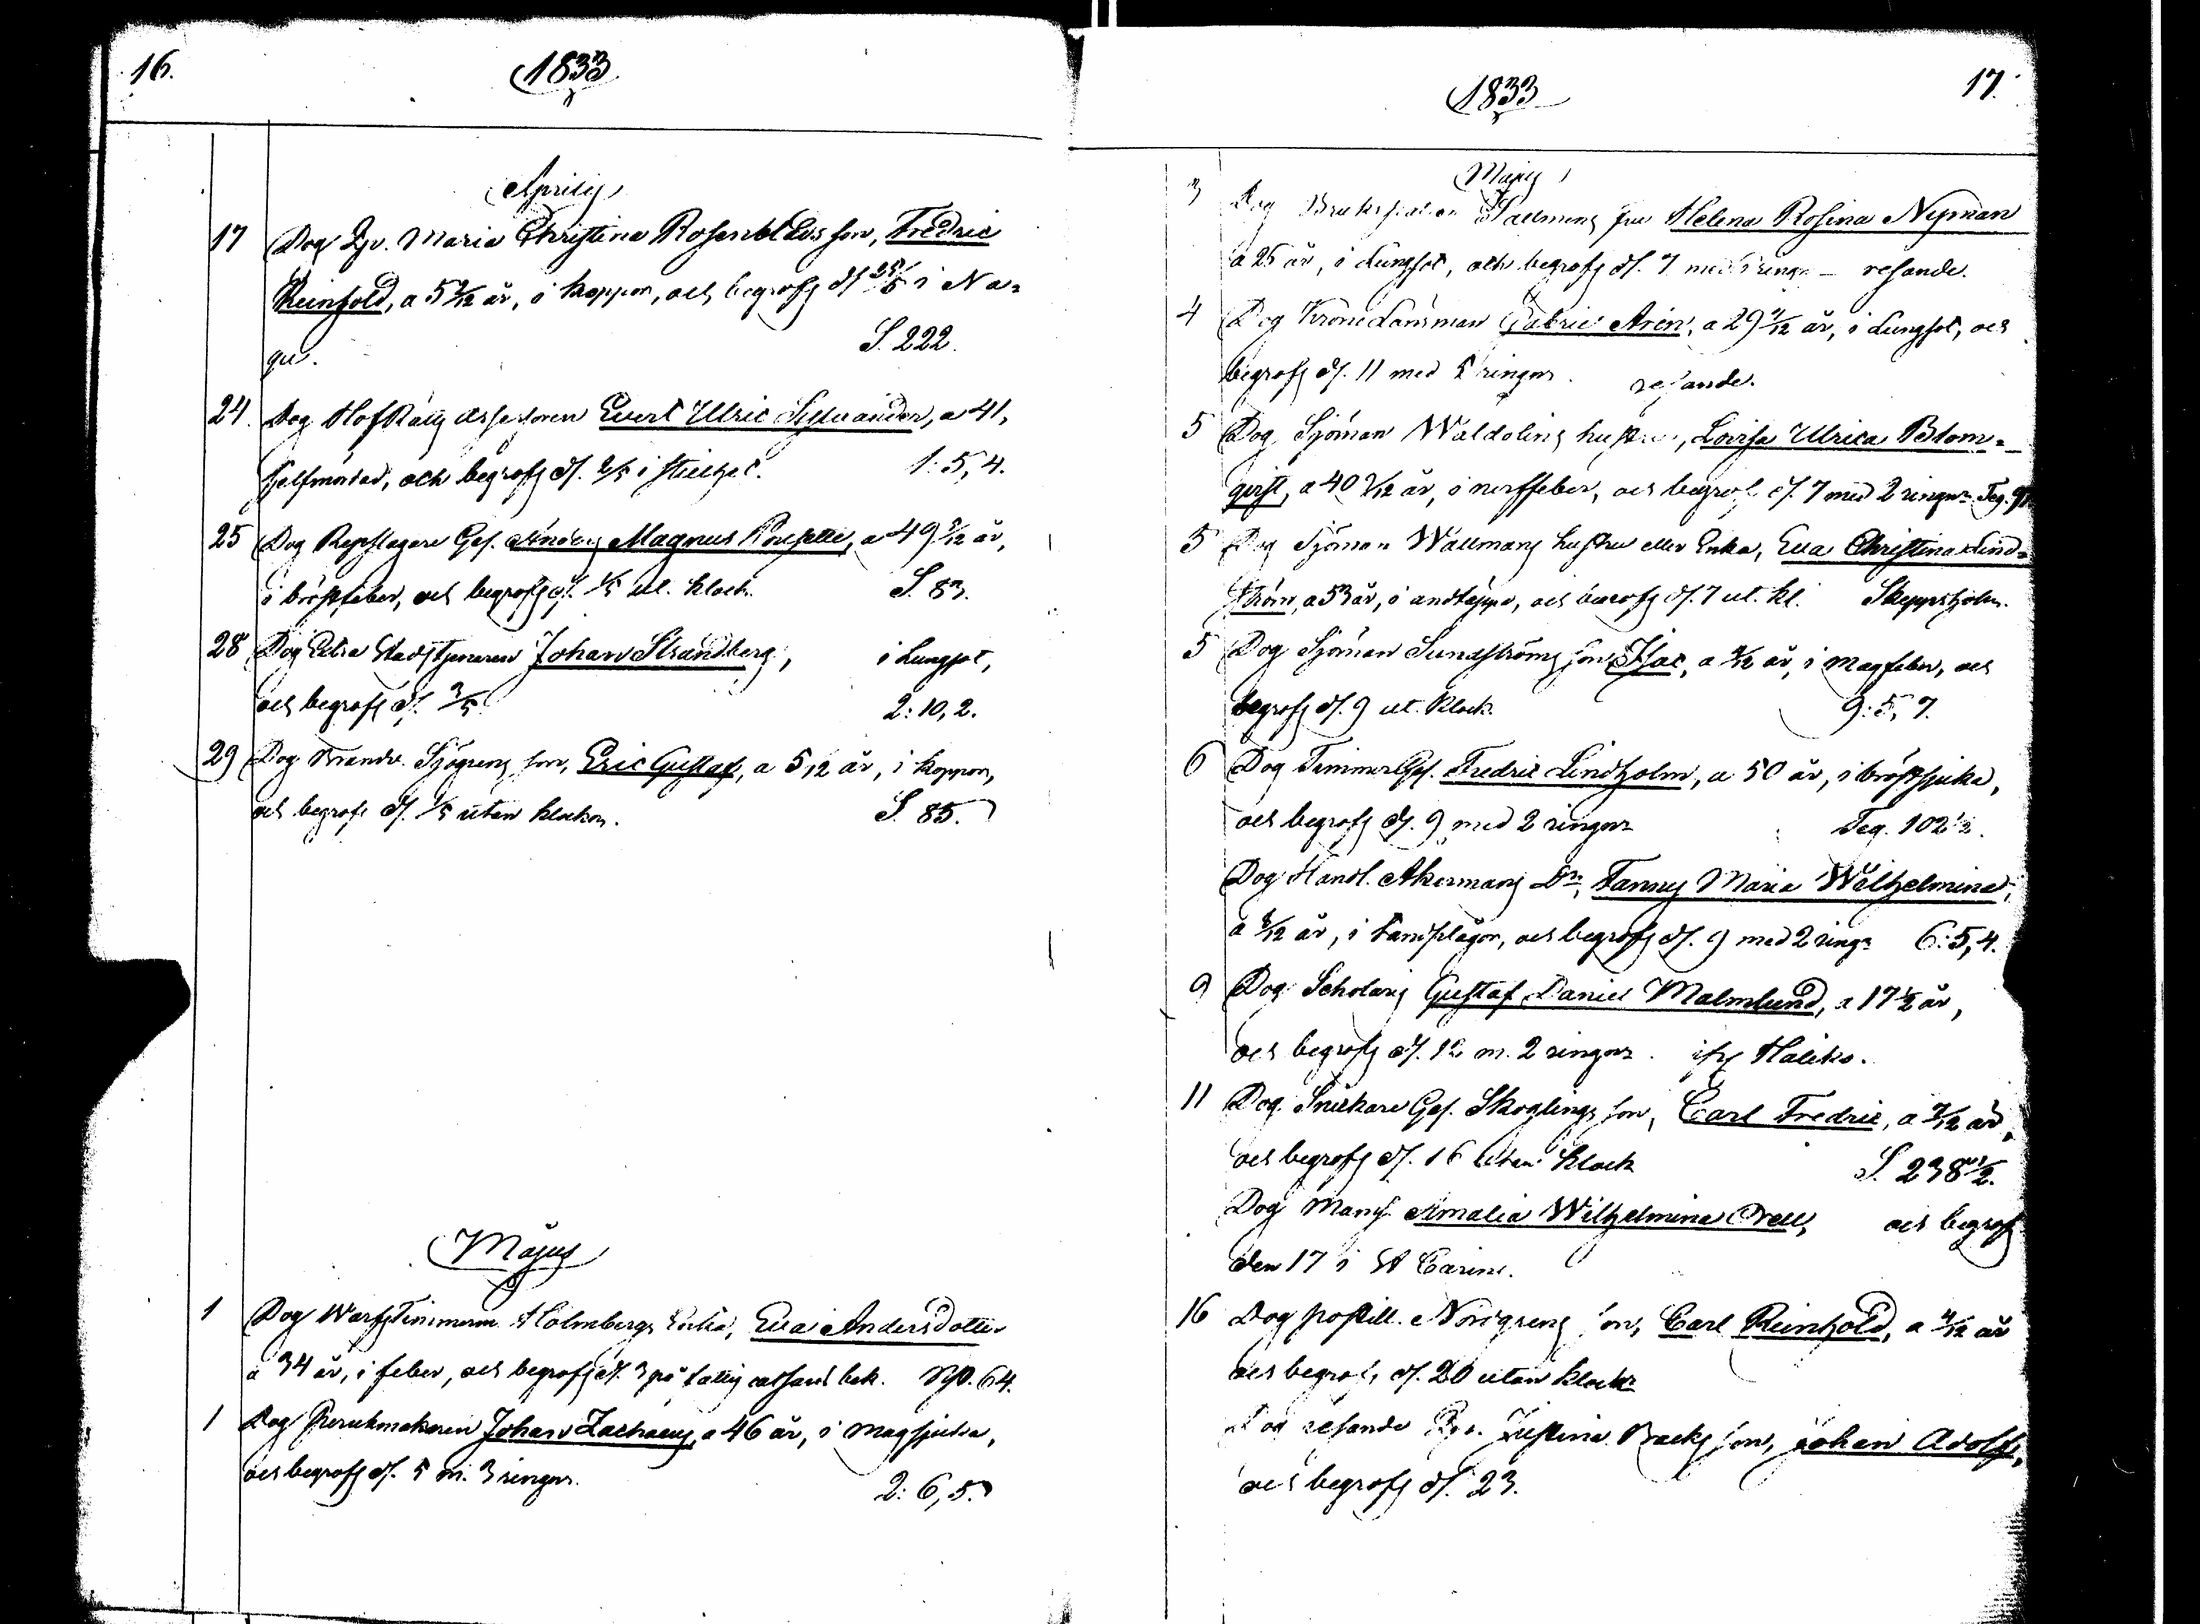 16.
1833
Aprilis
17 Dog Pig. Maria Christina Rosenblads son, Fredric
Reinhold, a 5 7/12 år, i koppor, och begrofs d. 25/5 i Na=
gu. S. 222.
24. Dog HofRätts Assessoren Evert Ulric, a 41,
sjelfmördad, och begrofs d. 2/5 i stillhet. 1: 5, 4.
25 Dog Repslagare Ges. Anders Magnus, a 49 år,
i bröstfeber, och begrofs d. 1/5 ut. klock. S. 83.
28 Dog Extra Stadstjenaren Johan Strandberg, i Lungsot,
och begrofs d. 3/5. 2: 10, 2.
29 Dog Brandv. Sjögrens son, Eric Gustaf, a 5/12 år, i koppor,
och begrofs d. 1/5 utan klockor. S. 85.
Majus
1 Dog WarfsTimmerm. Holmbergs Enka, Eva Andersdotter
a 34 år, i feber, och begrofs d. 3 på cassans bek. 64.
1 Dog Perukmakaren Johan Zachaeus, a 46 år, i magsjuka,
och begrofs d. 5 m. 3 ringnr. 2: 6, 5.
1833
17.
Majus
3 Dog fru Helena Rosina Nyman
a 25 år, i Lungsot, och begrofs d. 7 med ringn. – resande.
4 Dog KronoLänsman Gabriel Arén, a 29 år, i Lungsot, och
begrofs d. 11 med 5 ringnr. resande.
5 Dog Sjöman Waldolins hustru, Lovisa Ulrica Blom=
qvist, a 40 år, i nerffeber, och begrofs d. 7 med 2 ringnr. Teg.
5 Dog Sjöman Wallmans hustru eller Enka, Eva Christina Lind=
ström, a 53 år, i andtäppa, och begrofs d. 7 ut. kl. Skeppsholm.
5 Dog Sjöman Sundströms son Isac, a år, i magfeber, och
begrofs d. 9 ut. klock. 9: 5, 7.
6 Dog TimmerGes. Fredric Lindholm, a 50 år, i bröstsjuka,
och begrofs d. 9 med 2 ringnr Teg. 102 1/2.
Dog Handl. Åkermans Dr, Fanny Maria Wilhelmina,
a år, i tandplågor, och begrofs d. 9 med 2 ringr 6: 5, 4.
9 Dog Scholaris Gustaf Daniel Malmlund, a 17 1/2 år,
och begrofs d. 12 m. 2 ringnr. ifr. Haliko.
11 Dog Snickare Ges. Skoglings son, Carl Fredric, a 7/12 år,
och begrofs d. 16 utan klock S. 238 1/2.
Dog Mams. Amalia Wilhelmina, och begrofs
den 17 i St Carins.
16 Dog postill. Nordgrens son, Carl Reinhold, a år
och begrofs d. 20 utan klock
Dog resande Pig. Justina Backs son, Johan Adolf,
och begrofs d. 23.